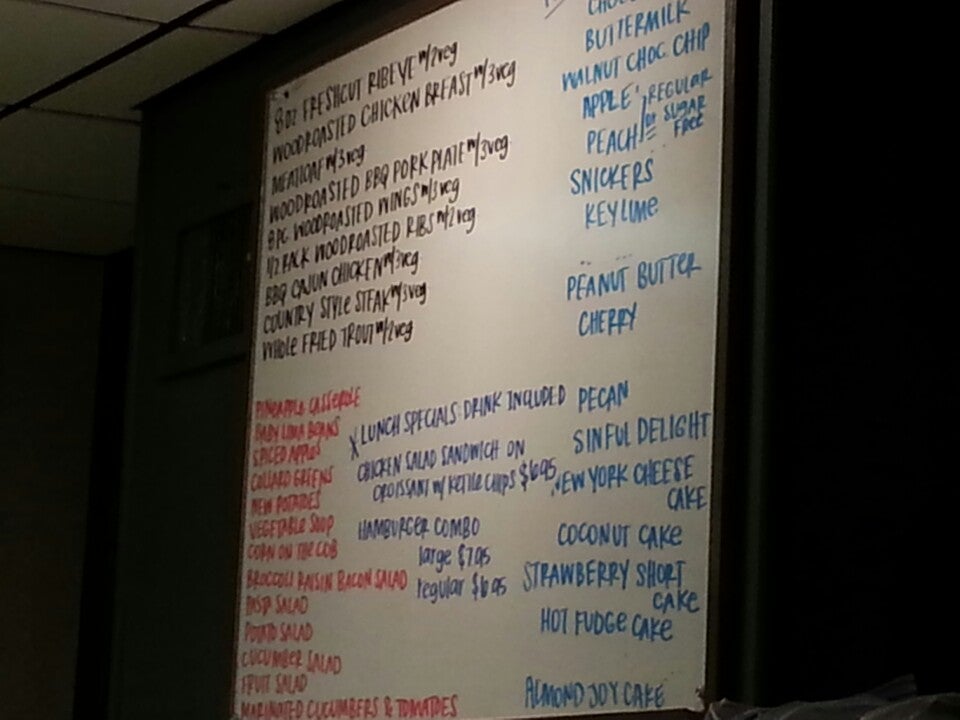 8 OZ FRESHCUT RIBEYE w/2veg
WOODROASTED CHICKEN BREAST w/3veg
MEATLOAF w/3veg
WOODROASTED BBQ PORK PLATE w/3veg
8 PC WOODROASTED WINGS w/3veg
1/2 RACK WOODROASTED RIBS w/2veg
BBQ CAJUN CHICKEN w/3veg
COUNTRY STYLE STEAK w/3veg
WHOLE FRIED TROUT w/2veg
PINEAPPLE CASSEROLE
BABY LIMA BEANS
SPICED APPLES
COLLARD GREENS
NEW POTATOES
VEGETABLE SOUP
CORN ON THE COB
BROCCOLI RAISIN BACON SALAD
PASTA SALAD
POTATO SALAD
CUCUMBER SALAD
FRUIT SALAD
MARINATED CUCUMBERS & TOMATOES
LUNCH SPECIALS: DRINK INCLUDED
CHICKEN SALAD SANDWICH ON
CROISSANT w/ KETTLE CHIPS $6.95
HAMBURGER COMBO
large $7.95
regular $6.95
BUTTERMILK
WALNUT CHOC. CHIP
APPLE
PEACH
REGULAR
or SUGAR
FREE
SNICKERS
KEYLIME
PEANUT BUTTER
CHERRY
PECAN
SINFUL DELIGHT
NEW YORK CHEESE
CAKE
COCONUT CAKE
STRAWBERRY SHORT
CAKE
HOT FUDGE CAKE
ALMOND JOY CAKE